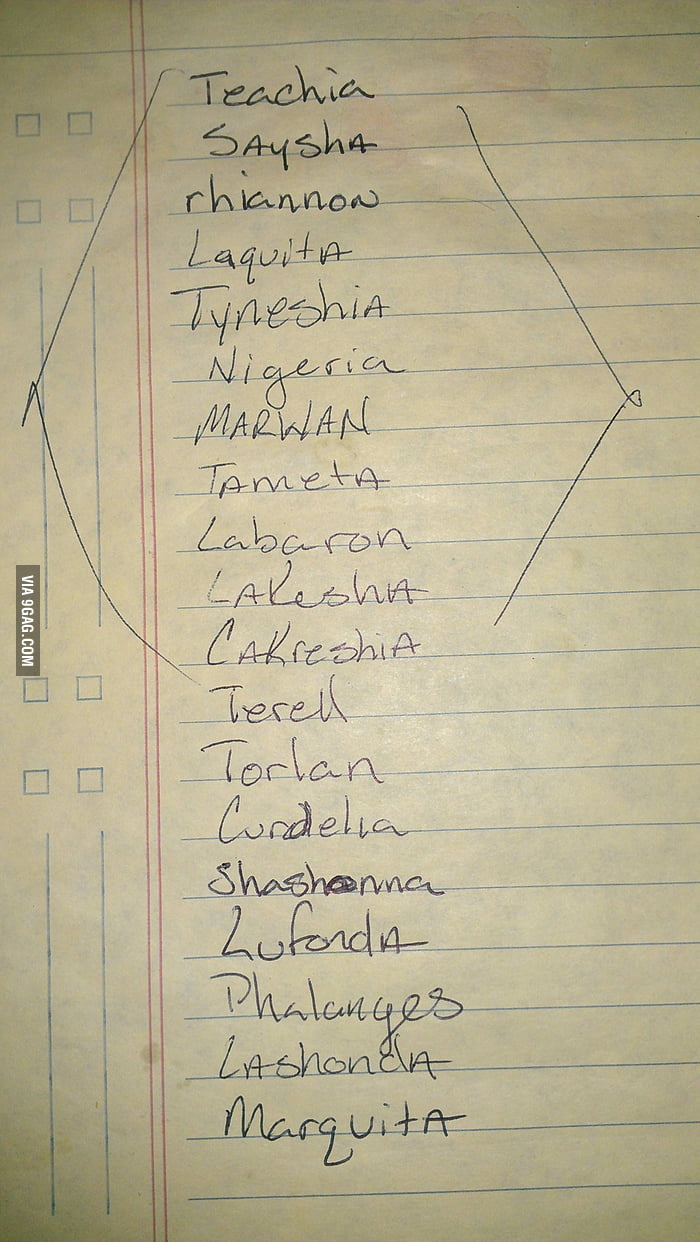 Teachia
SAyshA
rhiannon
LaquitA
TyneshiA
Nigeria
MARWAN
TAmetA
Labaron
LAKeshA
CAKreshiA
Terell
Torlan
Curdelia
Shashonna
LufondA
Phalanges
LAshondA
MarquitA
VIA 9GAG.COM